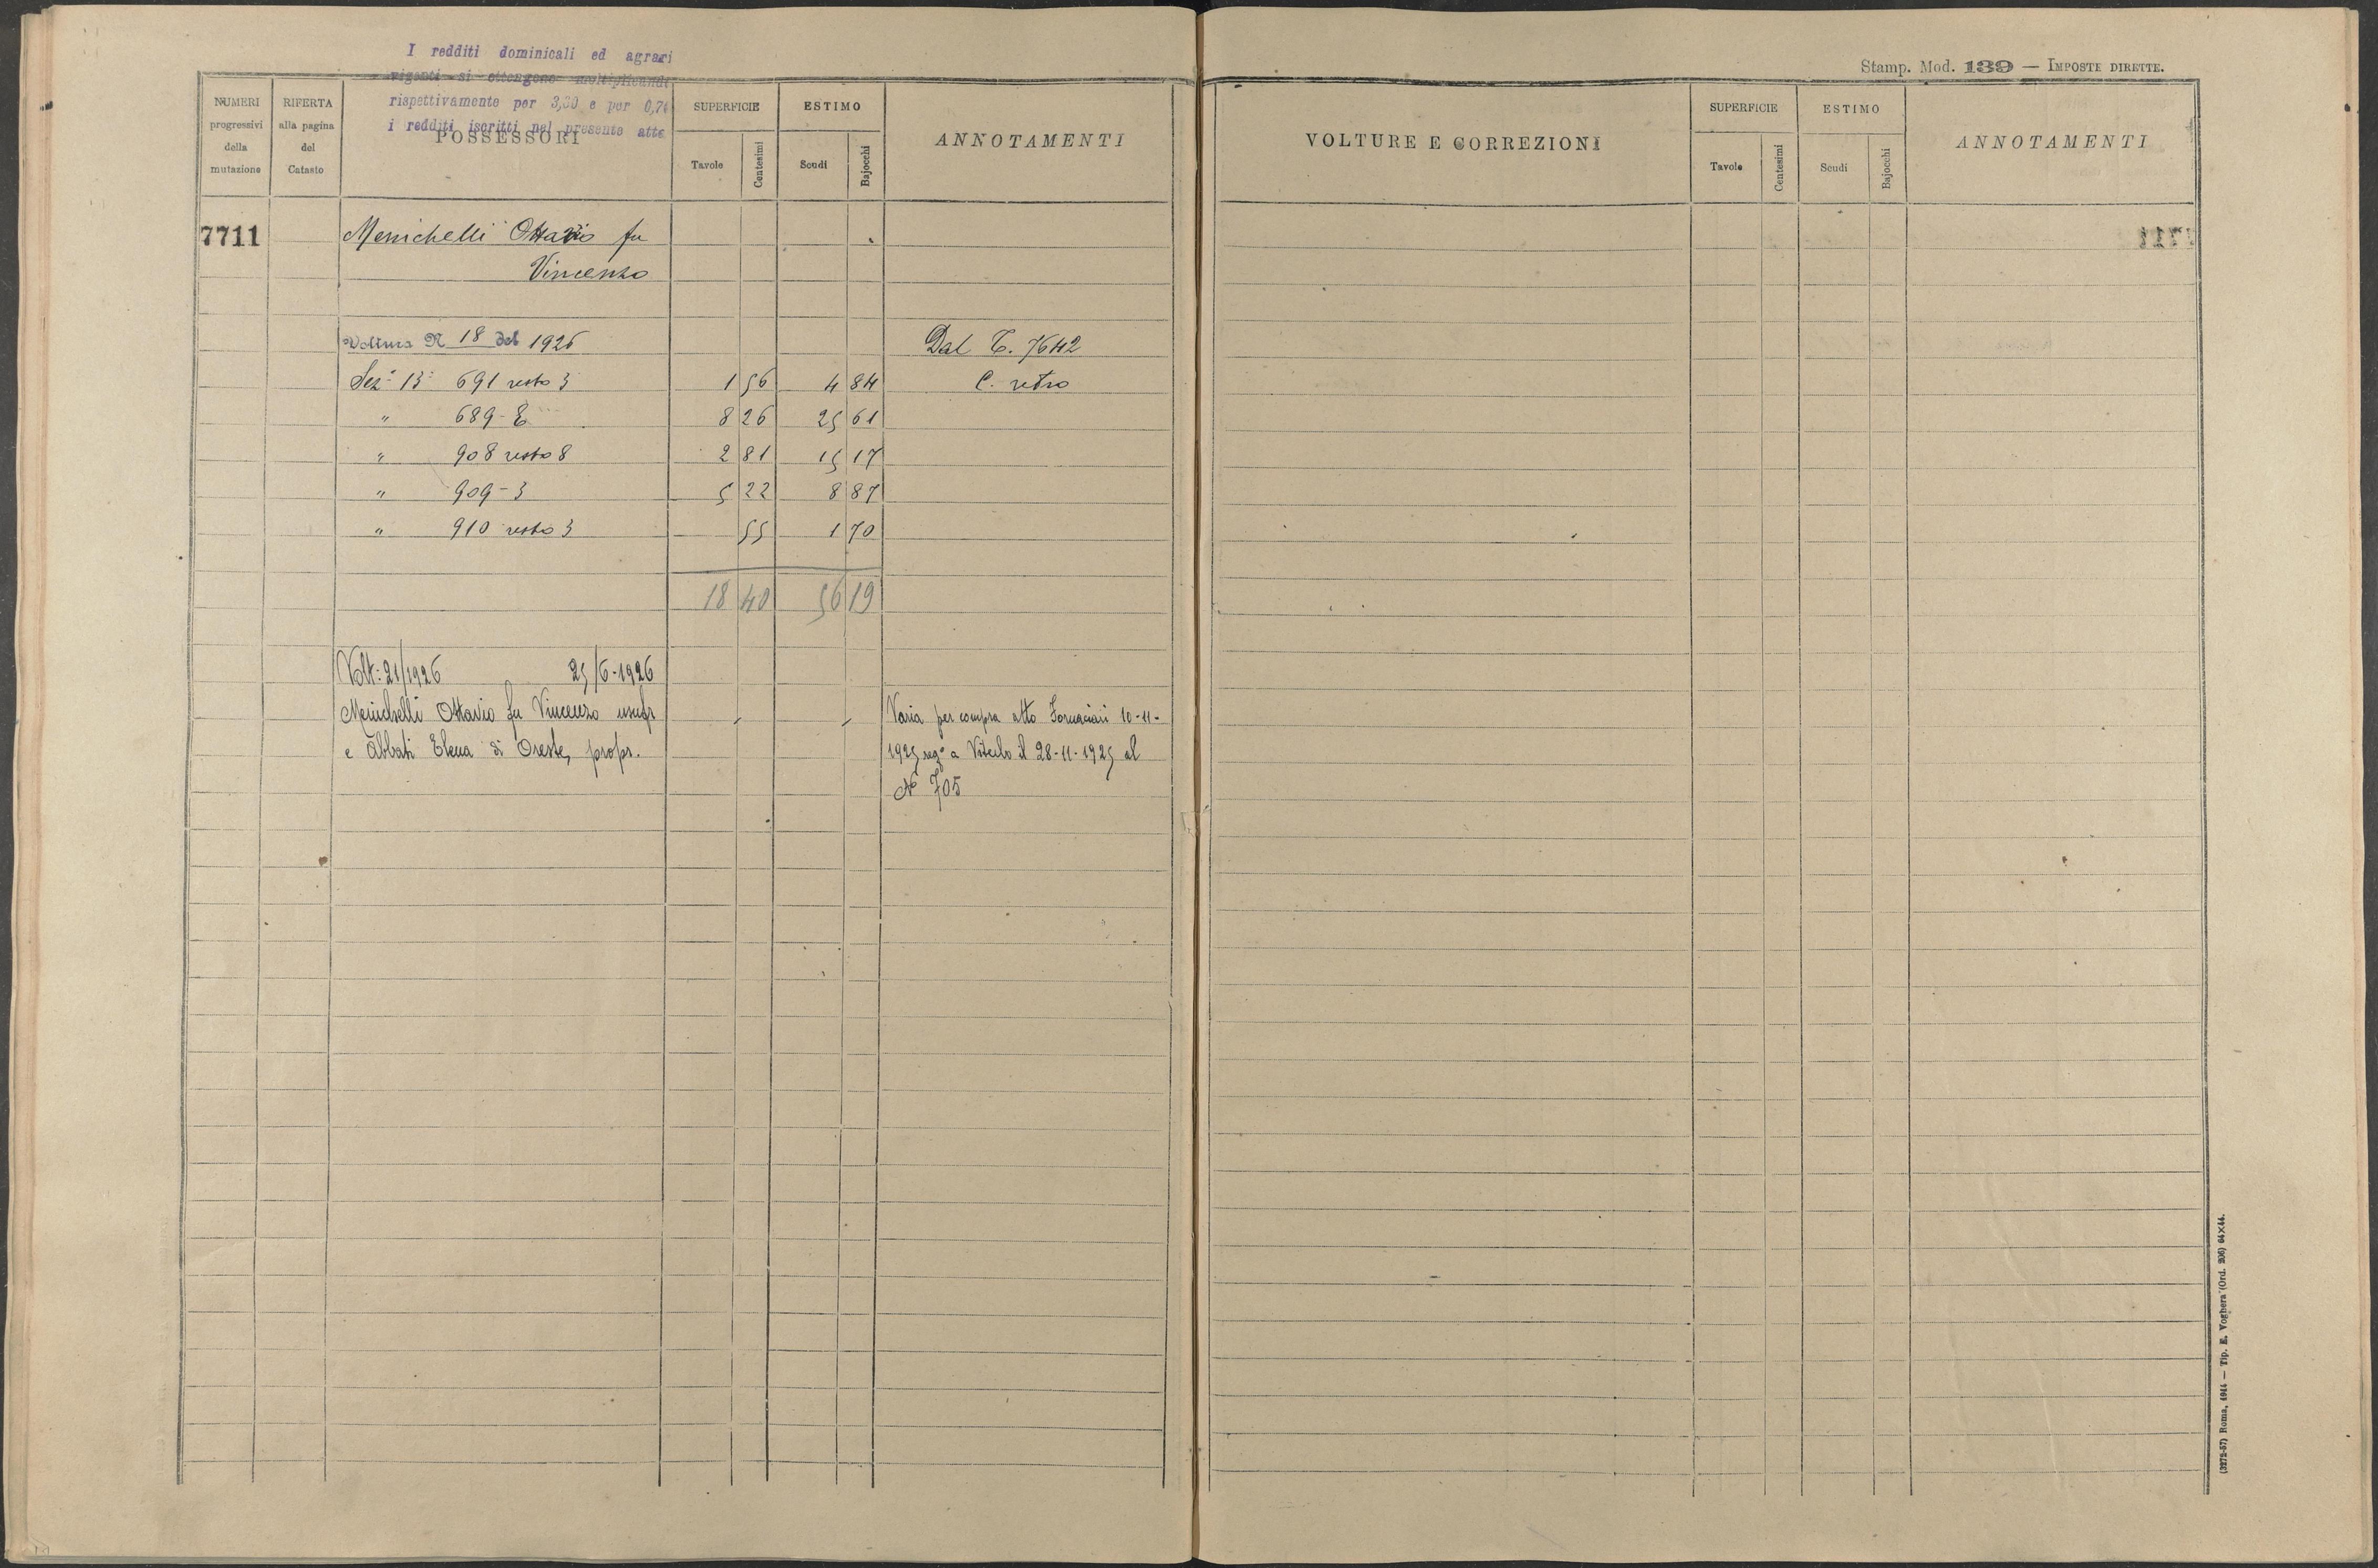 I redditi dominicali ed agrari
vigenti si ottengono moltiplicando
rispettivamente per 3,30 e per 0,74
i redditi iscritti nel presente atto
NUMERI progressivi della mutazione
RIFERTA alla pagina del Catasto
POSSESSORI
SUPERFICIE
Tavole
Centesimi
ESTIMO
Scudi
Bajocchi
ANNOTAMENTI
7711
Menichelli Ottavio fu
Vincenzo
Voltura N 18 del 1926
Dal T. 7642
Sez: 13: 691 resto 3 1 56 4 84 C. retro
" 689-E 8 26 25 61
" 908 resto 8 2 81 15 17
" 909-3 5 22 8 87
" 910 resto 3 55 1 70
18 40 56 19
Volt: 21/1926 25/6-1926
Menichelli Ottavio fu Vincenzo usufr
e Abbati Elena di Oreste, propr.
Varia per compra atto Fornaciari 10-11-
1925 rego a Viterbo il 28-11-1925 al
N° 705
Stamp. Mod. 139 — IMPOSTE DIRETTE.
VOLTURE E CORREZIONI
SUPERFICIE
Tavole
Centesimi
ESTIMO
Scudi
Bajocchi
ANNOTAMENTI
(3272-57) Roma, 1914 — Tip. E. Voghera (Ord. 206) 64×44.